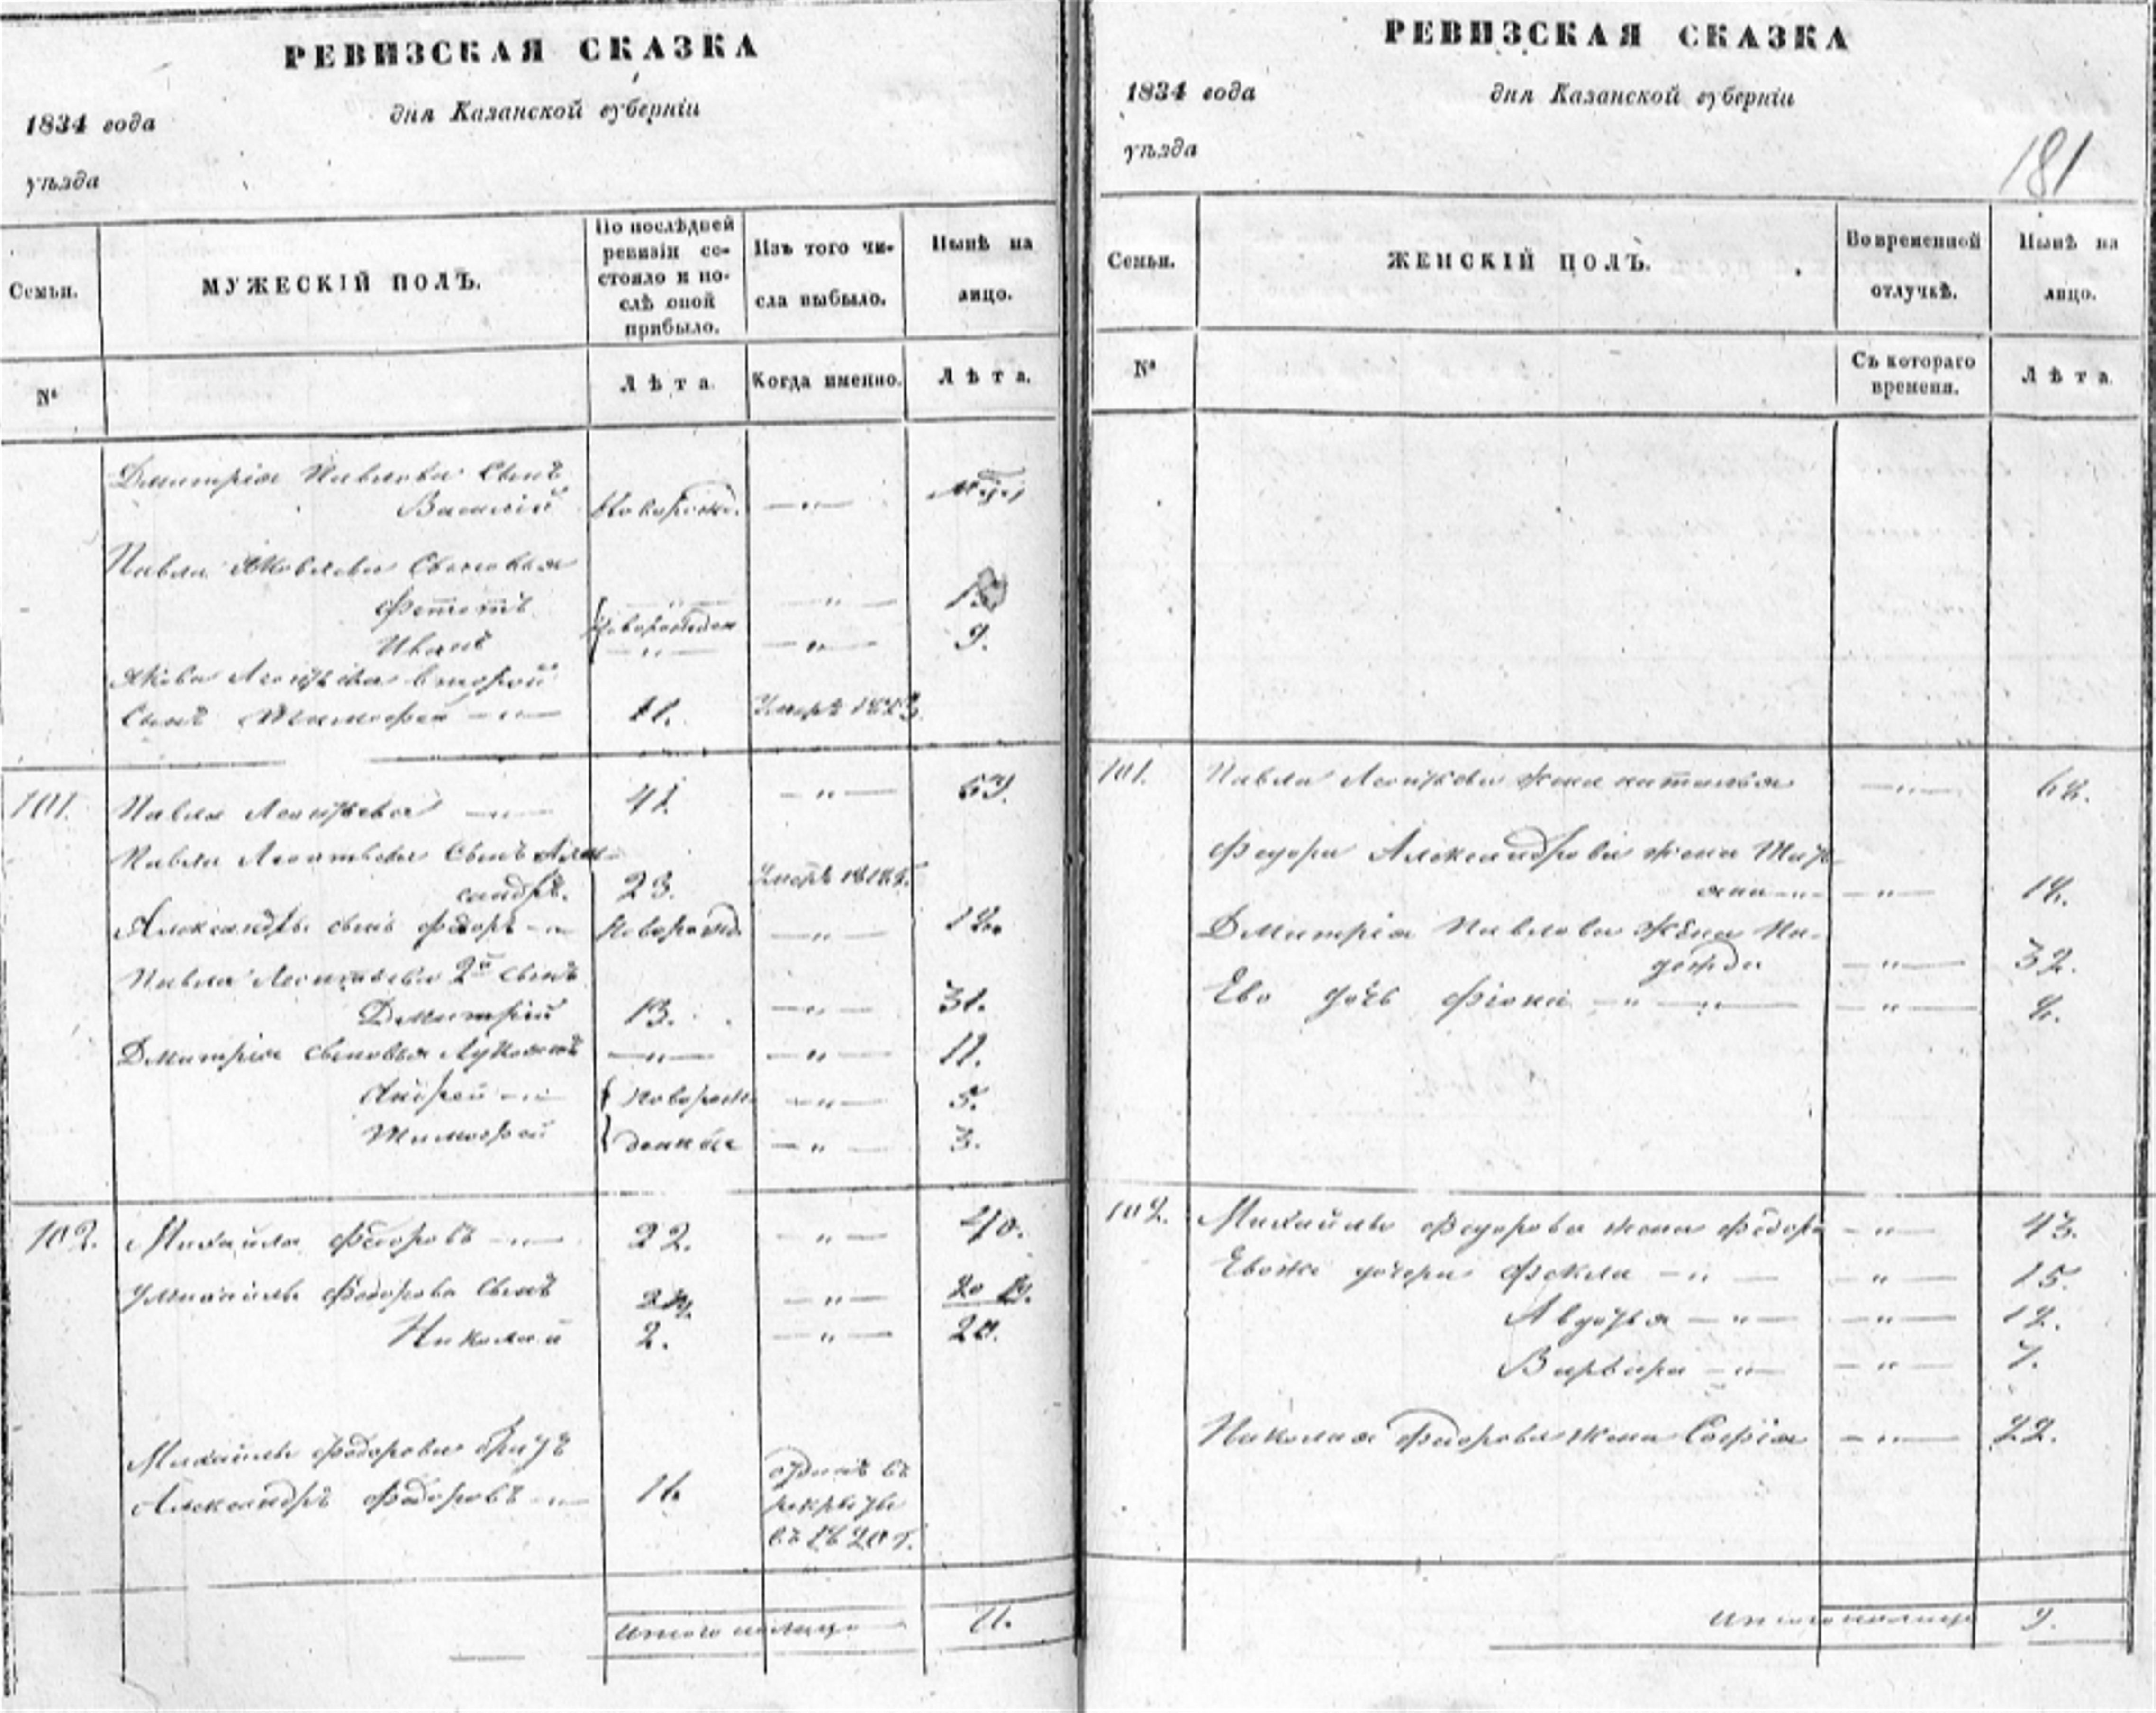 РЕВИЗСКАЯ СКАЗКА
1834 года
дня Казанской губерніи
уѣзда
Семьи.
МУЖЕСКІЙ ПОЛЪ.
По послѣдней
ревизіи со-
стояло и по-
слѣ оной
прибыло.
Изъ того чи-
сла выбыло.
Нынѣ на
лицо.
№
Лѣта.
Когда именно.
Лѣта.
Дмитрія Павлова Сынъ
Василій Новорожд. —"—
Павла Яковлева Сыновья
—"— —"—
Новорожден
Иванъ —"— —"— 9.
Якова Леонтьева второй
Сынъ Тимофей —"— 11. Умеръ
101. Павла Леонтьева —"— 41. —"—
Павла Леонтьева Сынъ Алек-
сандръ. 23. Умеръ
Александра сынъ Федоръ —"— Новорожд. —"—
Павла Леонтьева 2й Сынъ
Дмитрій 13. —"— 31.
Дмитрія Сыновья —"— —"— 11.
Андрей —"— Новорож —"— 5.
Тимофей денные —"— 3.
102. Михайла Федоровъ —"— 22. —"— 40.
Михайлы Федорова Сынъ —"—
Николай 2. —"— 20.
Михайлы Федорова братъ
Александръ Федоровъ —"— отданъ въ
рекруты
въ 1820 г.
Итого налицо 11.
РЕВИЗСКАЯ СКАЗКА
1834 года
дня Казанской губерніи
уѣзда
181
Семьи.
ЖЕНСКІЙ ПОЛЪ.
Во временной
отлучкѣ.
Нынѣ на
лицо.
№
Съ котораго
времени.
Лѣта.
101. Павла Леонтьева жена Наталья —"—
Федора Александрова жена Мар-
—"—
Дмитрія Павлова жена На-
дежда —"— 32.
Ево дочь Фіона —"— —"— —"—
102. Михайлы Федорова жена Федора —"— 43.
Евожъ дочери Фекла —"— —"— 15.
Авдотья —"— —"— 12.
Варвара —"— —"— 7.
Николая Федорова жена Софія —"— 22.
Итого налицо 9.